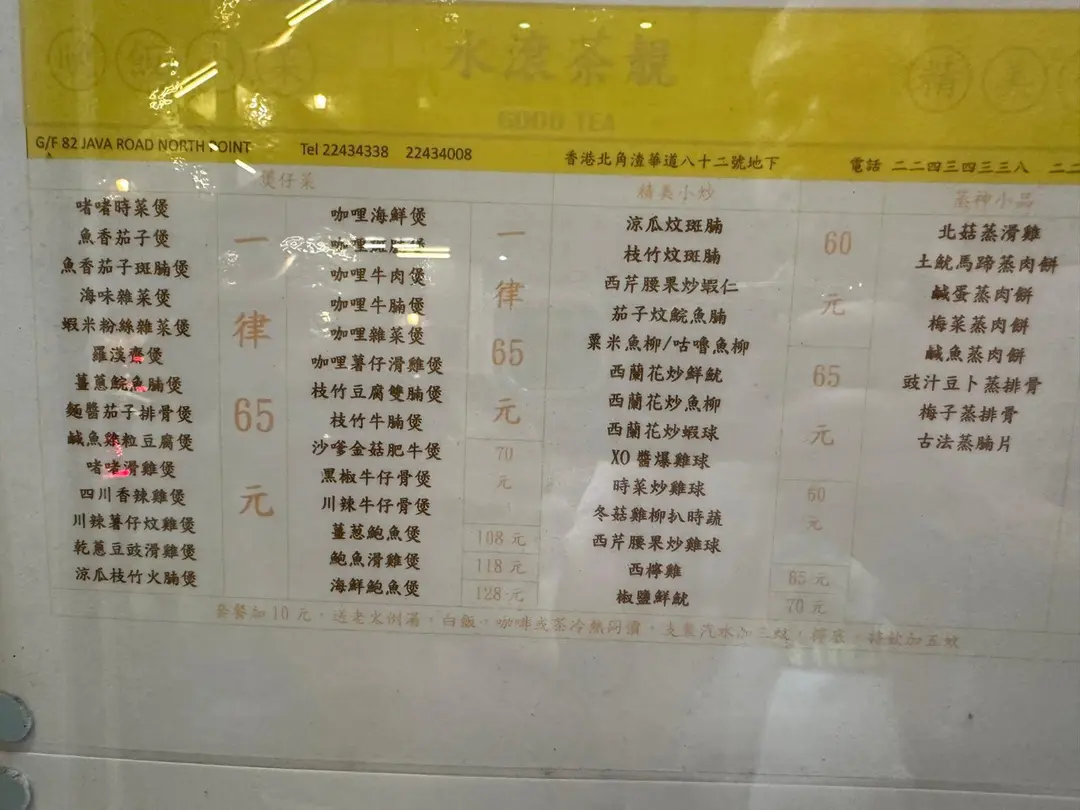 晚飯小菜
水滾茶靚
精美
GOOD TEA
G/F 82 JAVA ROAD NORTH POINT
Tel 22434338 22434008
香港北角渣華道八十二號地下
電話 二二四三四三三八 二二
煲仔菜
啫啫時菜煲
魚香茄子煲
魚香茄子斑腩煲
海味雜菜煲
蝦米粉絲雜菜煲
羅漢齋煲
薑蔥鯇魚腩煲
麵醬茄子排骨煲
鹹魚雞粒豆腐煲
啫啫滑雞煲
四川香辣雞煲
川辣薯仔炆雞煲
乾蔥豆豉滑雞煲
涼瓜枝竹火腩煲
一律65元
咖哩海鮮煲
咖哩魚腩煲
咖哩牛肉煲
咖哩牛腩煲
咖哩雜菜煲
咖哩薯仔滑雞煲
枝竹豆腐雙腩煲
枝竹牛腩煲
沙嗲金菇肥牛煲
黑椒牛仔骨煲
川辣牛仔骨煲
薑蔥鮑魚煲
鮑魚滑雞煲
海鮮鮑魚煲
一律65元
70元
108元
118元
128元
精美小炒
涼瓜炆斑腩
枝竹炆斑腩
西芹腰果炒蝦仁
茄子炆鯇魚腩
粟米魚柳/咕嚕魚柳
西蘭花炒鮮魷
西蘭花炒魚柳
西蘭花炒蝦球
XO醬爆雞球
時菜炒雞球
冬菇雞柳扒時蔬
西芹腰果炒雞球
西檸雞
椒鹽鮮魷
60元
65元
60元
65元
70元
蒸神小品
北菇蒸滑雞
土魷馬蹄蒸肉餅
鹹蛋蒸肉餅
梅菜蒸肉餅
鹹魚蒸肉餅
豉汁豆卜蒸排骨
梅子蒸排骨
古法蒸腩片
套餐加10元，送老火例湯，白飯，咖啡或茶冷熱同價。支裝汽水加三蚊，特飲加五蚊